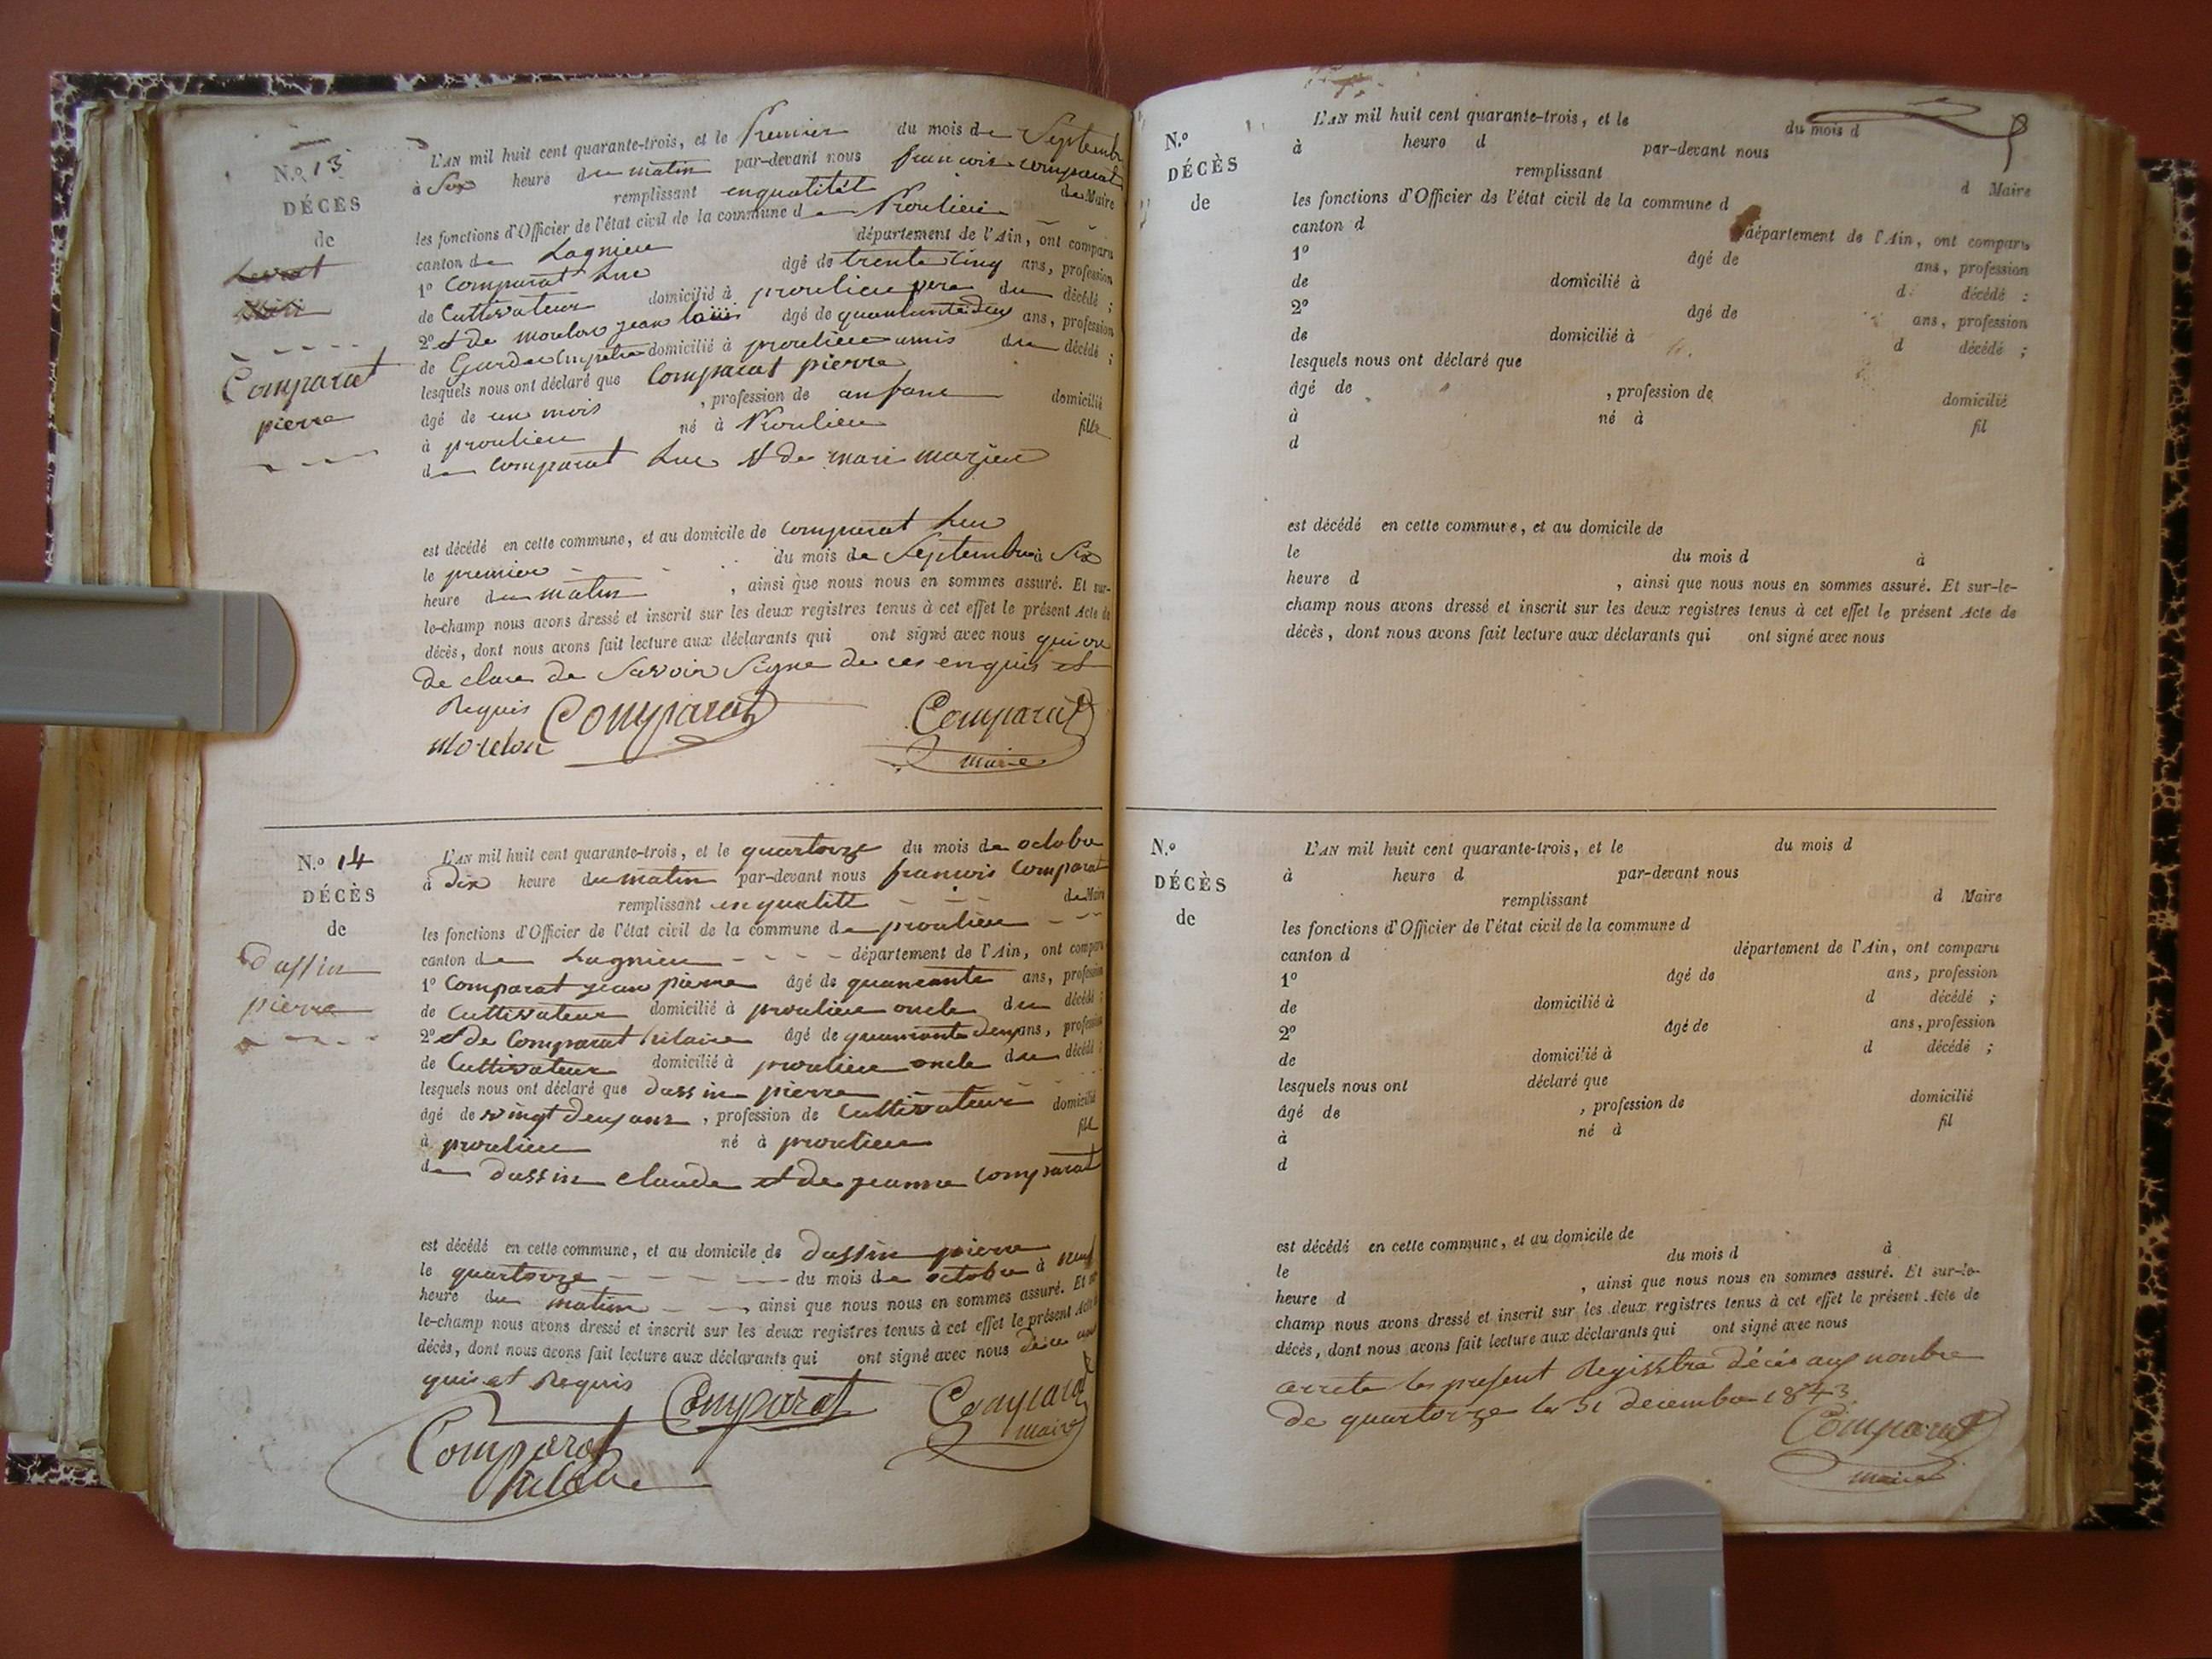 N.º 13
DÉCÈS
de
Comparat
pierre
L'AN mil huit cent quarante-trois, et le Premier du mois de Septembre
à Six heure du matin par-devant nous francois comparat
remplissant enqualitét de Maire
les fonctions d'Officier de l'état civil de la commune de Proulieu
canton de Lagnieu département de l'Ain, ont comparu
1º Comparat Luc âgé de trente Cinq ans, profession
de Cultivateur domicilié à proulieu pere du décédé ;
2º et de morelon jean âgé de ans, profession
de domicilié à proulieu amis du décédé ;
lesquels nous ont déclaré que Comparat pierre
âgé de un mois , profession de anfant domicilié
à proulieu né à Proulieu fils
de comparat Luc et de mari
est décédé en cette commune, et au domicile de comparat Luc
le premier du mois de Septembre à Six
heure du matin , ainsi que nous nous en sommes assuré. Et sur-
le-champ nous avons dressé et inscrit sur les deux registres tenus à cet effet le présent Acte de
décès, dont nous avons fait lecture aux déclarants qui ont signé avec nous
de clare de Savoir Signe de ces enquis et
Requis Comparat Comparat
morelon maire
N.º 14
DÉCÈS
de
dassin
pierre
L'AN mil huit cent quarante-trois, et le quartorze du mois de octobre
à dix heure du matin par-devant nous francois Comparat
remplissant enqualitt de Maire
les fonctions d'Officier de l'état civil de la commune de proulieu
canton de Lagnieu département de l'Ain, ont comparu
1º Comparat jean pierre âgé de ans, profession
de Cultivateur domicilié à proulieu oncle du décédé ;
2º et de Comparat hilaire âgé de ans, profession
de Cultivateur domicilié à proulieu oncle du décédé ;
lesquels nous ont déclaré que dassin pierre
âgé de vingt deux ans , profession de Cultivateur domicilié
à proulieu né à proulieu fils
de dassin claude et de jeanne comparat
est décédé en cette commune, et au domicile de dassin pierre
le quartorze du mois de octobre à neuf
heure du matin , ainsi que nous nous en sommes assuré. Et sur-
le-champ nous avons dressé et inscrit sur les deux registres tenus à cet effet le présent Acte de
décès, dont nous avons fait lecture aux déclarants qui ont signé avec nous
quis et Requis Comparat Comparat
Comparat maire
hilaire
N.º
DÉCÈS
de
L'AN mil huit cent quarante-trois, et le du mois d
à heure d par-devant nous
remplissant d Maire
les fonctions d'Officier de l'état civil de la commune d
canton d département de l'Ain, ont comparu
1º âgé de ans, profession
de domicilié à d décédé ;
2º âgé de ans, profession
de domicilié à d décédé ;
lesquels nous ont déclaré que
âgé de , profession de domicilié
à né à fil
d
est décédé en cette commune, et au domicile de
le du mois d à
heure d , ainsi que nous nous en sommes assuré. Et sur-le-
champ nous avons dressé et inscrit sur les deux registres tenus à cet effet le présent Acte de
décès, dont nous avons fait lecture aux déclarants qui ont signé avec nous
N.º
DÉCÈS
de
L'AN mil huit cent quarante-trois, et le du mois d
à heure d par-devant nous
remplissant d Maire
les fonctions d'Officier de l'état civil de la commune d
canton d département de l'Ain, ont comparu
1º âgé de ans, profession
de domicilié à d décédé ;
2º âgé de ans, profession
de domicilié à d décédé ;
lesquels nous ont déclaré que
âgé de , profession de domicilié
à né à fil
d
est décédé en cette commune, et au domicile de
le du mois d à
heure d , ainsi que nous nous en sommes assuré. Et sur-le-
champ nous avons dressé et inscrit sur les deux registres tenus à cet effet le présent Acte de
décès, dont nous avons fait lecture aux déclarants qui ont signé avec nous
arrete le present Registre décés aux nonbre
de quartorze le 31 decembre 1843
Comparat
maire